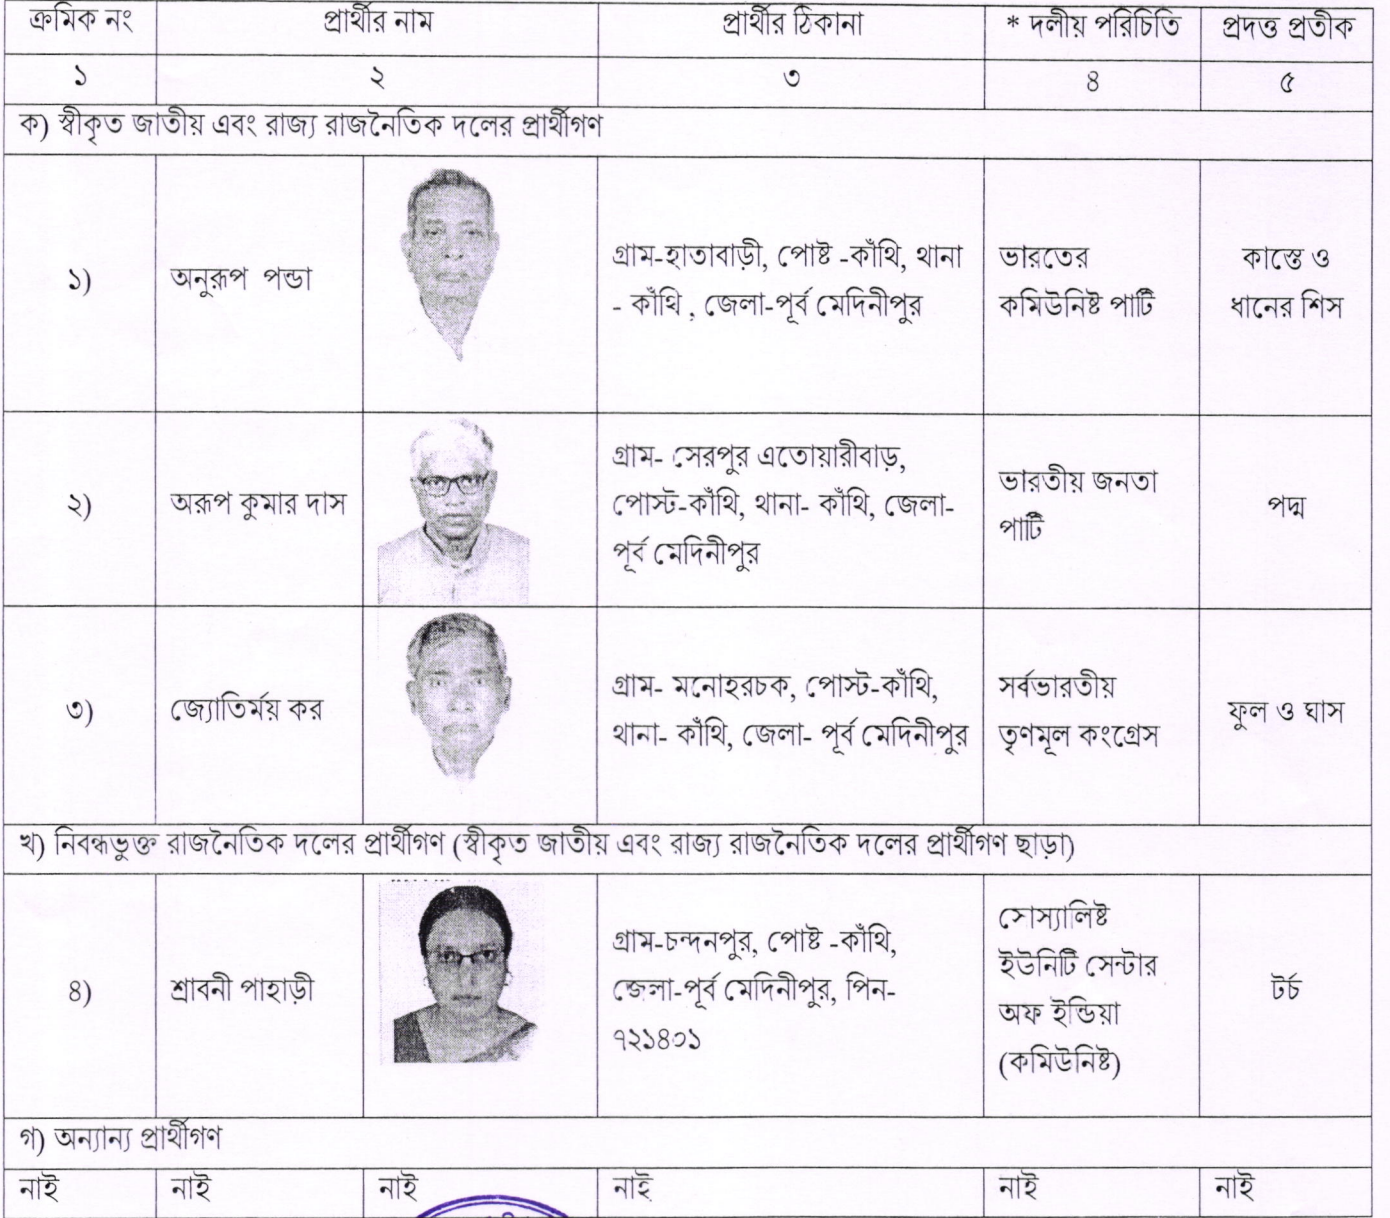 ক্রমিক নং প্রার্থীর নাম প্রার্থীর ঠিকানা * দলীয় পরিচিতি প্রদত্ত প্রতীক
১ ২ ৩ ৪ ৫
ক) স্বীকৃত জাতীয় এবং রাজ্য রাজনৈতিক দলের প্রার্থীগণ
১) অনুরূপ পন্ডা
গ্রাম-হাতাবাড়ী, পোষ্ট -কাঁথি, থানা
- কাঁথি , জেলা-পূর্ব মেদিনীপুর
ভারতের
কমিউনিষ্ট পার্টি
কাস্তে ও
ধানের শিস
২) অরূপ কুমার দাস
গ্রাম- সেরপুর এতোয়ারীবাড়,
পোস্ট-কাঁথি, থানা- কাঁথি, জেলা-
পূর্ব মেদিনীপুর
ভারতীয় জনতা
পার্টি
পদ্ম
৩) জ্যোতির্ময় কর
গ্রাম- মনোহরচক, পোস্ট-কাঁথি,
থানা- কাঁথি, জেলা- পূর্ব মেদিনীপুর
সর্বভারতীয়
তৃণমূল কংগ্রেস
ফুল ও ঘাস
খ) নিবন্ধভুক্ত রাজনৈতিক দলের প্রার্থীগণ (স্বীকৃত জাতীয় এবং রাজ্য রাজনৈতিক দলের প্রার্থীগণ ছাড়া)
৪) শ্রাবনী পাহাড়ী
গ্রাম-চন্দনপুর, পোষ্ট -কাঁথি,
জেলা-পূর্ব মেদিনীপুর, পিন-
৭২১৪০১
সোস্যালিষ্ট
ইউনিটি সেন্টার
অফ ইন্ডিয়া
(কমিউনিষ্ট)
টর্চ
গ) অন্যান্য প্রার্থীগণ
নাই নাই নাই নাই নাই নাই